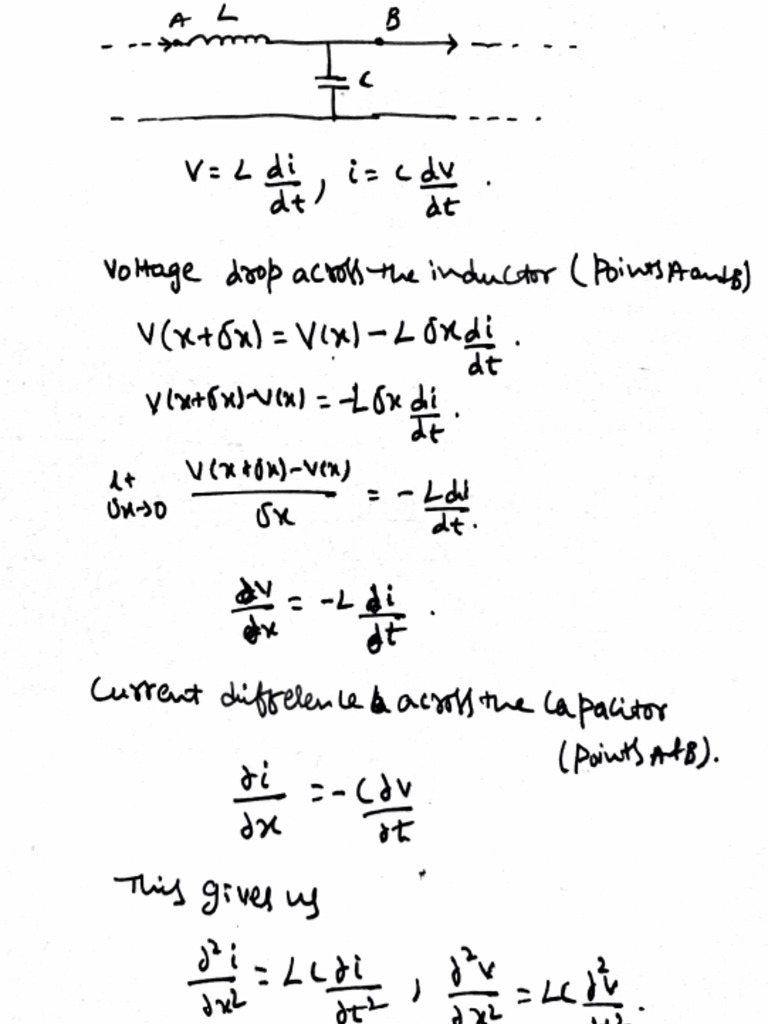 A L B
C
V = L di/dt, i = C dv/dt.
Voltage drop across the inductor (Points A and B)
V(x+δx) = V(x) - L δx di/dt.
V(x+δx) - V(x) = -L δx di/dt.
lt δx→0 V(x+δx)-V(x) / δx = - L di/dt.
∂v/∂x = -L ∂i/∂t.
Current difference across the capacitor
(Points A & B).
∂i/∂x = - C ∂v/∂t
This gives us
∂²i/∂x² = LC ∂i/∂t², ∂²v/∂x² = LC ∂²v/